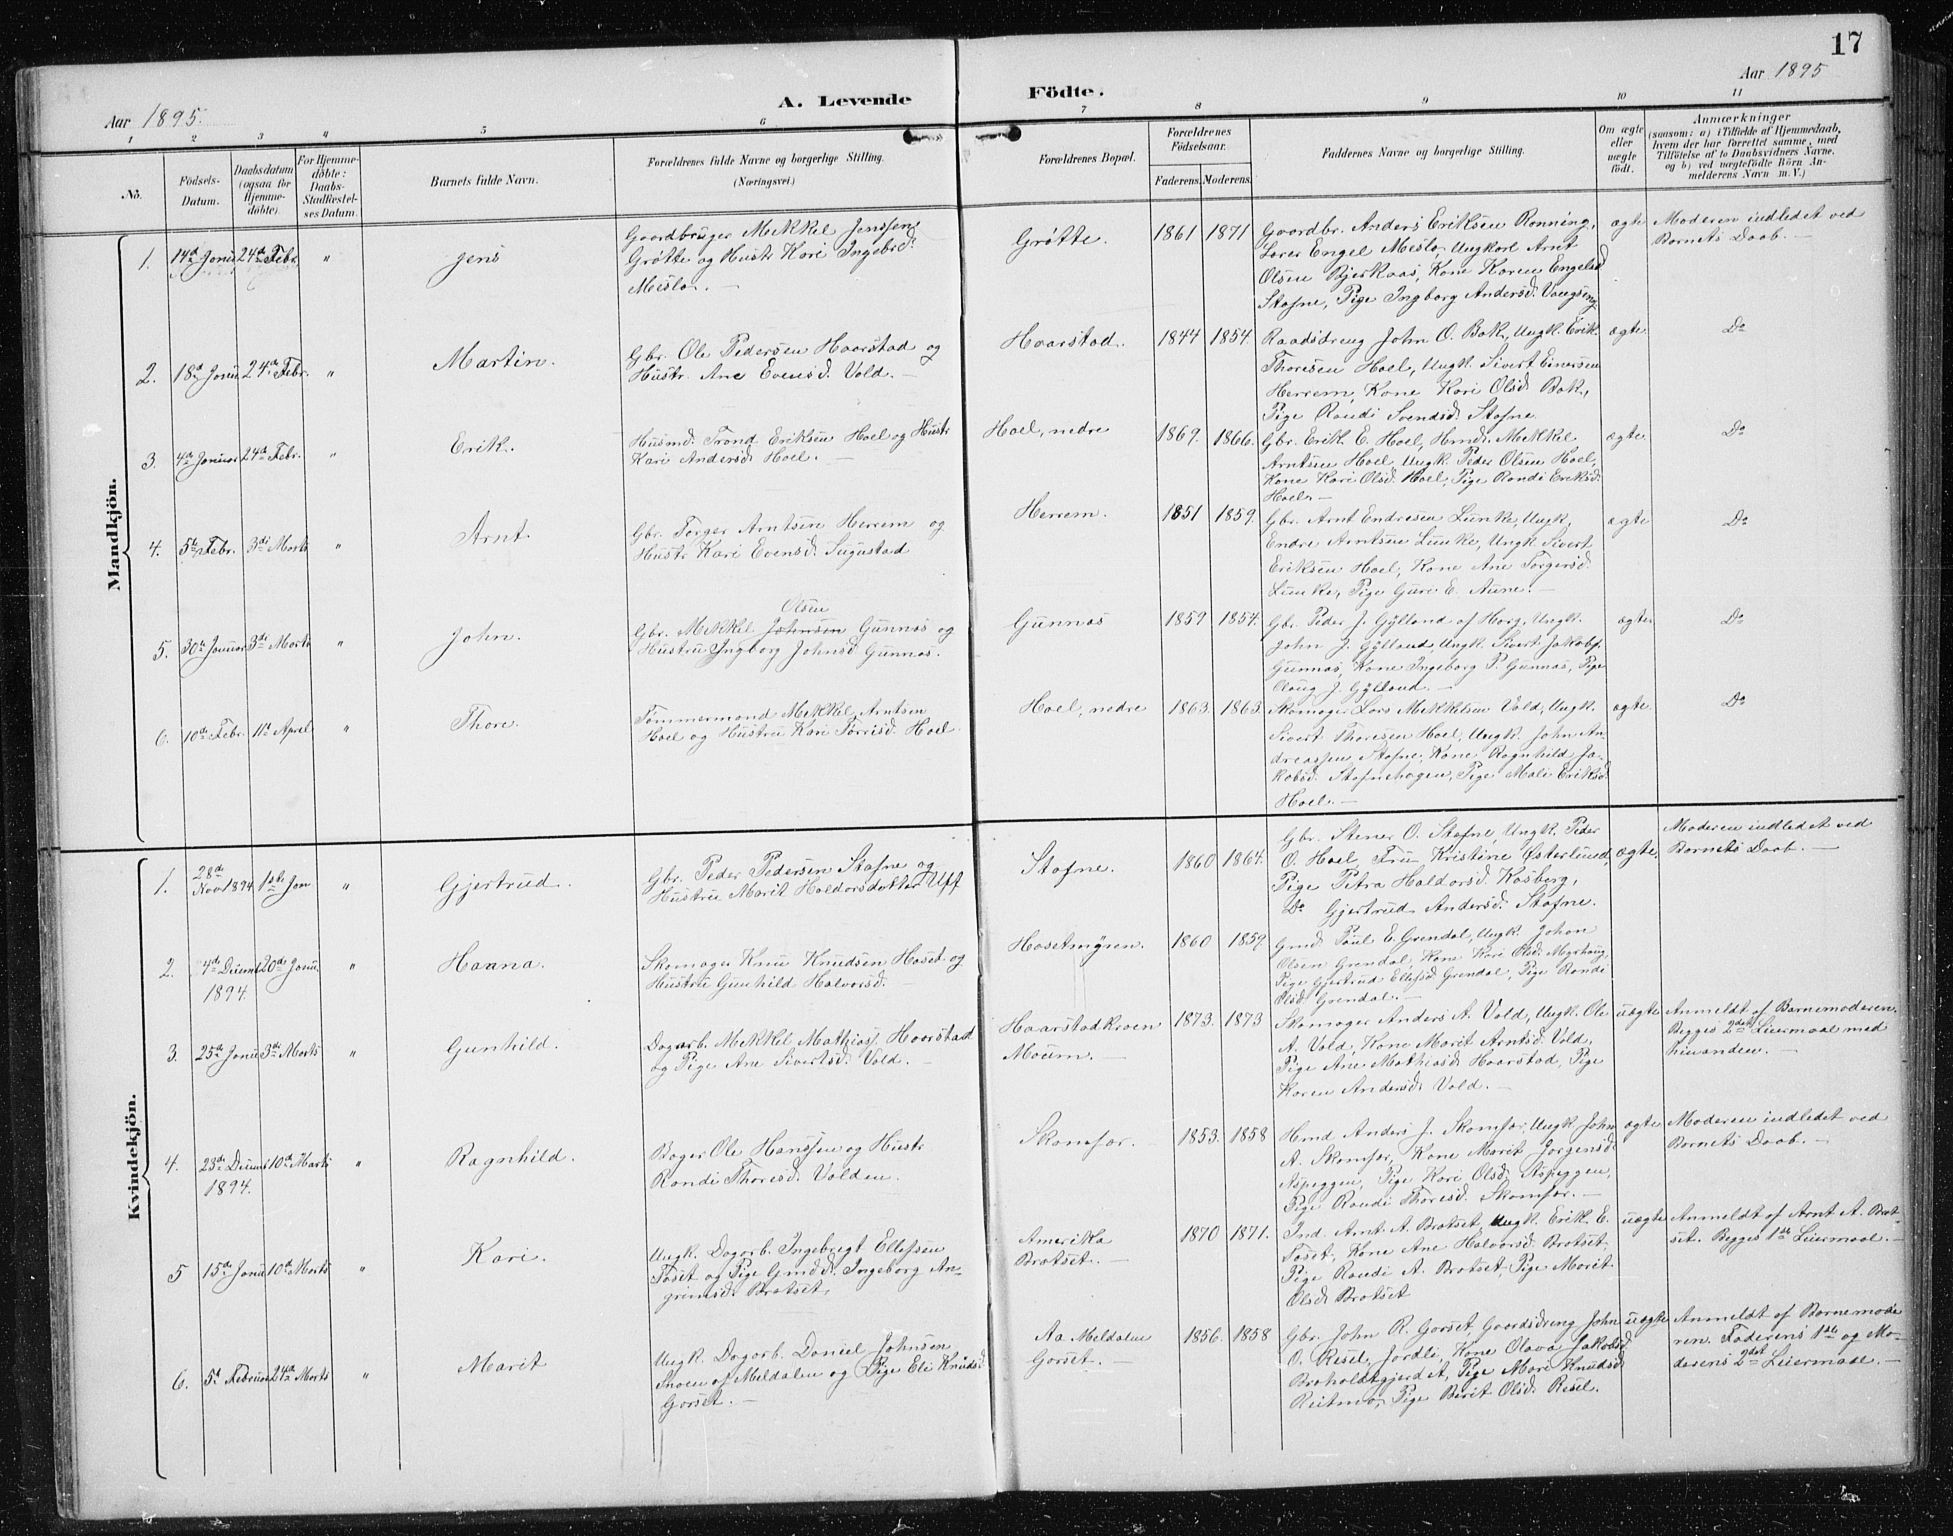 17
Aar 1895.
A. Levende
Födte.
Aar 1895
1
2
3
4
5
6
7
8
9
10
11
No.
Födsels-
Datum.
Daabsdatum
(ogsaa for
Hjemme-
döbte).
For Hjemme-
döbte:
Daabs-
Stadfæstel-
ses Datum.
Barnets fulde Navn.
Forældrenes fulde Navne og borgerlige Stilling.
(Næringsvei.)
Forældrenes Bopæl.
Forældrenes
Födselsaar.
Faderens.
Moderens.
Faddernes Navne og borgerlige Stilling.
Om ægte
eller
uægte
födt.
Anmærkninger
(saasom: a) i Tilfælde af Hjemmedaab,
hvem der har forrettet samme, med
Tilföielse af to Daabsvidners Navne,
og b) ved uægtefödte Börn An-
melderens Navn m. V.)
Mandkjön.
1.
14de Janu
24de Febr.
"
Jens
Gaardbruger Mekkel Jenssen
Grøtte og Hustr Kari Ingebrd.
Meslo. —
Grøtte.
1861
1871
Gaardbr. Anders Eriksen Rønning,
Lærer Engel Meslo, Ungkarl Arnt
Olsen Bjerkaas, Kone Karen Engelsd
Stafne, Pige Ingborg Andersd. Vangseng
ægte
Moderen indledet ved
Barnets Daab. —
2.
18de Janu
24de Febr.
"
Martin.
Gbr. Ole Pedersen Haarstad og
Hustr. Ane Evensd. Vold. —
Haarstad.
1844
1854.
Raadsdreng John O. Bak, Ungk. Erik
Thoresen Hoel, Ungk. Sivert Einersen
Herrem, Kone Kari Olsd. Bak,
Pige Randi Svendsd. Stafne.
ægte
Do
3.
4de Januar
24de Febr.
"
Erik.
Husmd. Trond Eriksen Hoel og Hustr
Kari Andersd. Hoel. —
Hoel, nedre
1869.
1866.
Gbr. Erik E. Hoel, Hmd. Mekkel
Arntsen Hoel, Ungk. Peder Olsen Hoel,
Kone Kari Olsd. Hoel, Pige Randi Eriksd.
Hoel. —
ægte.
Do
4.
5te Febr.
3de Marts
"
Arnt.
Gbr. Torger Arntsen Herrem og
Hustr Kari Evensd. Sugustad
Herrem.
1851
1859.
Gbr. Arnt Endresen Lunke, Ungk.
Endre Arntsen Lunke, Ungk. Sivert
Eriksen Hoel, Kone Ane Torgersd.
Lunke, Pige Guri E. Aune. —
ægte
Do
5.
30te Januar
3de Marts
"
John.
Olsen
Gbr. Mekkel Johnsen Gunnas og
Hustru Ingborg Johnsd. Gunnas.
Gunnas
1859
1854.
Gbr. Peder J. Gylland af Horg, Ungk.
John J. Gylland, Ungk. Sivert Jakobs.
Gunnas, Kone Ingeborg P. Gunnas, Pige
Olaug J. Gylland. —
ægte
Do
6.
10de Febr.
11te April
"
Thore.
Tømmermand Mekkel Arntsen
Hoel og Hustru Kari Torrisd. Hoel
Hoel, nedre
1863.
1863.
Skomager Lars Mekkelsen Vold, Ungk.
Sivert Thoresen Hoel, Ungk. John An-
dreassen, Stafne, Kone Ragnhild Ja-
kobsd. Stafnehagen, Pige Mali Eriksd.
Hoel. —
ægte
Do
Kvindekjön.
1.
28de
Nov 1894
1ste Jan
"
Gjertrud.
Gbr. Peder Pedersen Stafne og
Hustru Marit Haldorsdotter Uff
Stafne.
1860
1864.
Gbr. Stener O. Stafne, Ungk. Peder
O. Hoel, Fru Kristine Østerlund,
Pige Petra Haldorsd. Kosberg,
Do Gjertrud Andersd. Stafne.
ægte.
Moderen indledet ved
Barnets Daab. —
2.
4de Decmb
1894.
20de Janu
"
Haana.
Skomager Knu Knudsen Hoset og
Hustru Gunhild Halvorsd.
Hosetmyren.
1860
1859.
Gmd. Paul E. Grendal, Ungk. Johan
Olsen Grendal, Kone Kari Olsd. Myrhaug,
Pige Gjertrud Ellefsd. Grendal, Pige Randi
Olsd. Grendal. —
3.
25de Janu
3de Marts
"
Gunhild.
Dagarb. Mekkel Mathias. Haarstad
og Pige Ane Sivertsd. Vold. —
Haarstadkroen
Moum. —
1873.
1873
Skomager Anders A. Vold, Ungk. Ole
A. Vold, Kone Marit Arntsd. Vold,
Pige Ane Mathiasd. Haarstad, Pige
Karen Andersd. Vold. —
uægte
Anmeldt af Barnemoderen.
Begges 2det Leiermaal med
hinanden. —
4.
23de Decmb
1894.
10de Marts
"
Ragnhild.
Bager Ole Hanssen og Hustr
Randi Thoresd. Volden.
Skomfar. —
1853.
1858
Hmd Anders J. Skomfar, Ungk. John
A. Skomfar, Kone Marit Jørgensd.
Aspeggen, Pige Kari Olsd. Aspeggen,
Pige Randi Thoresd. Skomfar. —
ægte
Moderen indledet ved
Barnets Daab. —
5
15de Janu
10de Marts
"
Kari.
Ungk. Dagarb. Ingebrigt Ellefsen
Foset og Pige Gmdd. Ingeborg An-
grimsd. Bratset.
Amerika
Bratset. —
1870
1871.
Ind. Arnt A. Bratset, Ungk. Erik E.
Foset, Kone Ane Halvorsd. Bratset,
Pige Randi A. Bratset, Pige Marit
Olsd. Bratset
uægte
Anmeldt af Arnt A. Brat-
set. Begges 1ste Leiermaal. —
6.
5te Februar
24de Marts
"
Marit
Ungk. Dagarb. Daniel Johnsen
Snoen af Meldalen og Pige Eli Knudsd.
Gorset. —
Aa Meldalen
Gorset. —
1856.
1858
Gbr. John R. Gorset, Gaardsdreng John
O. Resel, Jordli, Kone Olava Jakobsd.
Braholdtgjerdet, Pige Mari Knudsd
Reitmo, Pige Berit Olsd. Resel.
uægte
Anmeldt af Barnemode
ren. Faderens 1ste og Mo-
derens 2det Leiermaal. —